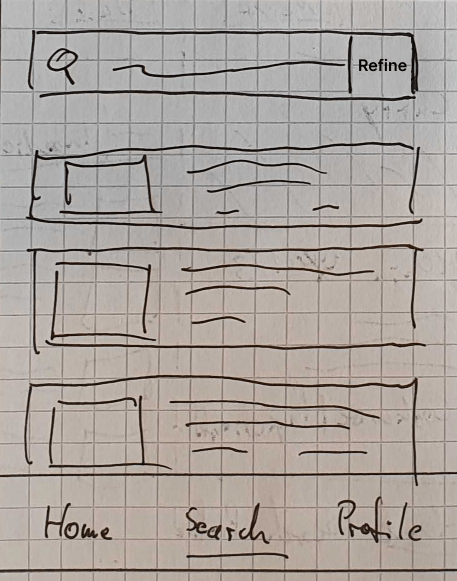 Refine
Home Search Profile